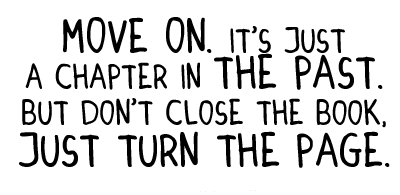 MOVE ON. IT'S JUST
A CHAPTER IN THE PAST.
BUT DON'T CLOSE THE BOOK,
JUST TURN THE PAGE.